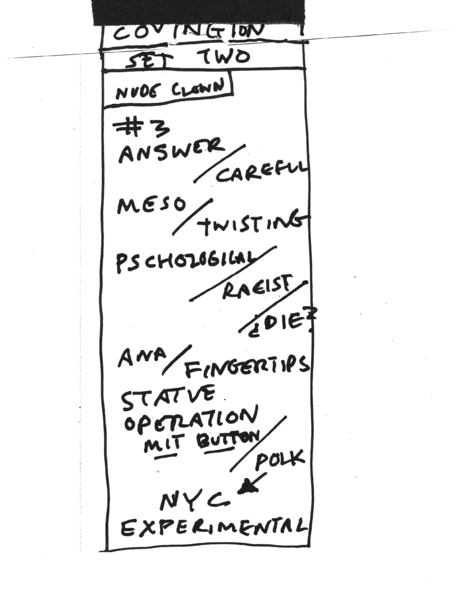 COVINGTON
SET TWO
NUDE CLOWN
#3
ANSWER/
CAREFUL
MESO/
TWISTING
PSCHOLOGICAL/
RACIST/
¿DIE?
ANA/
FINGERTIPS
STATVE
OPERATION
MIT BUTTON/
POLK
NYC
EXPERIMENTAL